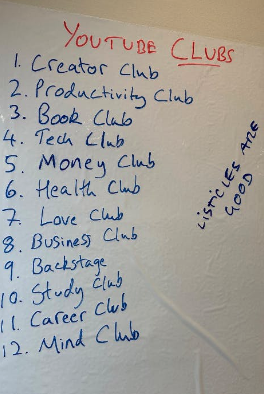 YOUTUBE CLUBS
1. Creator Club
2. Productivity Club
3. Book Club
4. Tech Club
5. Money Club
6. Health Club
7. Love Club
8. Business Club
9. Backstage
10. Study Club
11. Career Club
12. Mind Club
LISTICLES ARE
GOOD